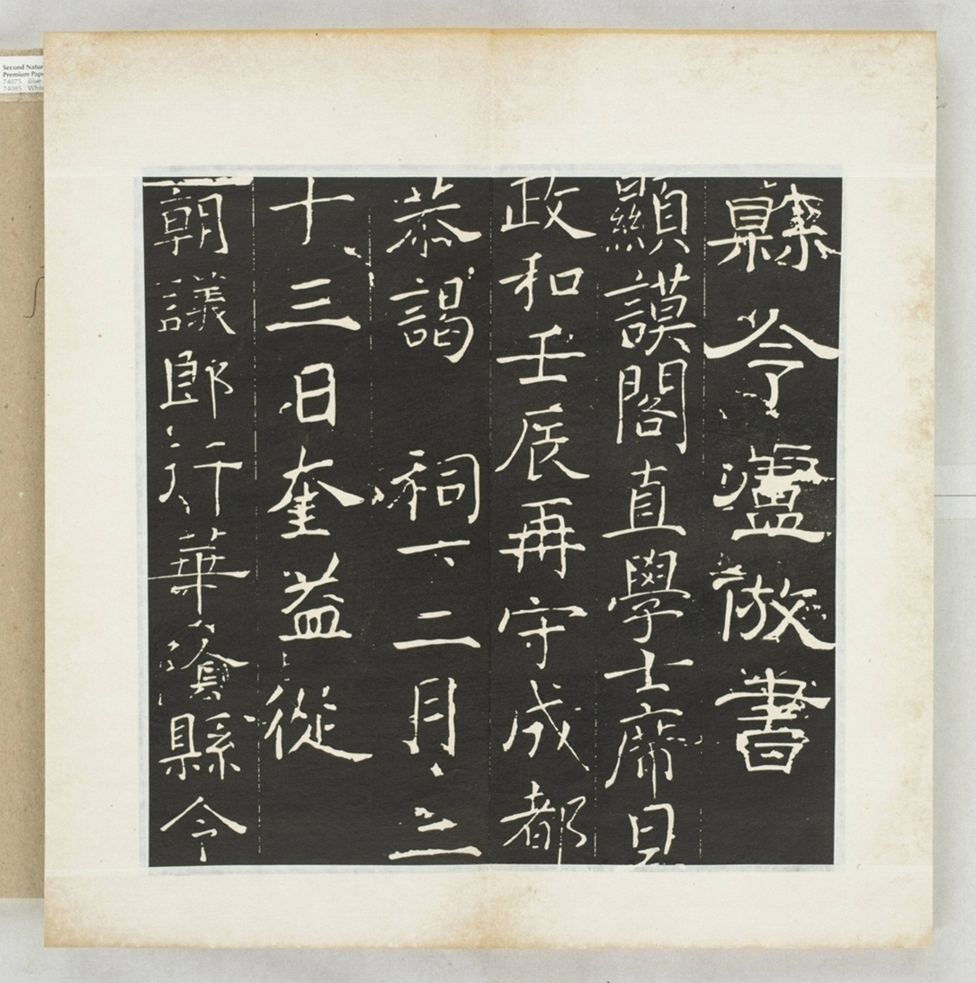 縣令瀘倣書
顯謨閣直學士席旦
政和壬辰再守成都
恭謁 祠下二月二
十三日奎益從
朝議郎行華隂縣令
Second Natur
Premium Pape
74075 Blue
74085 Whit